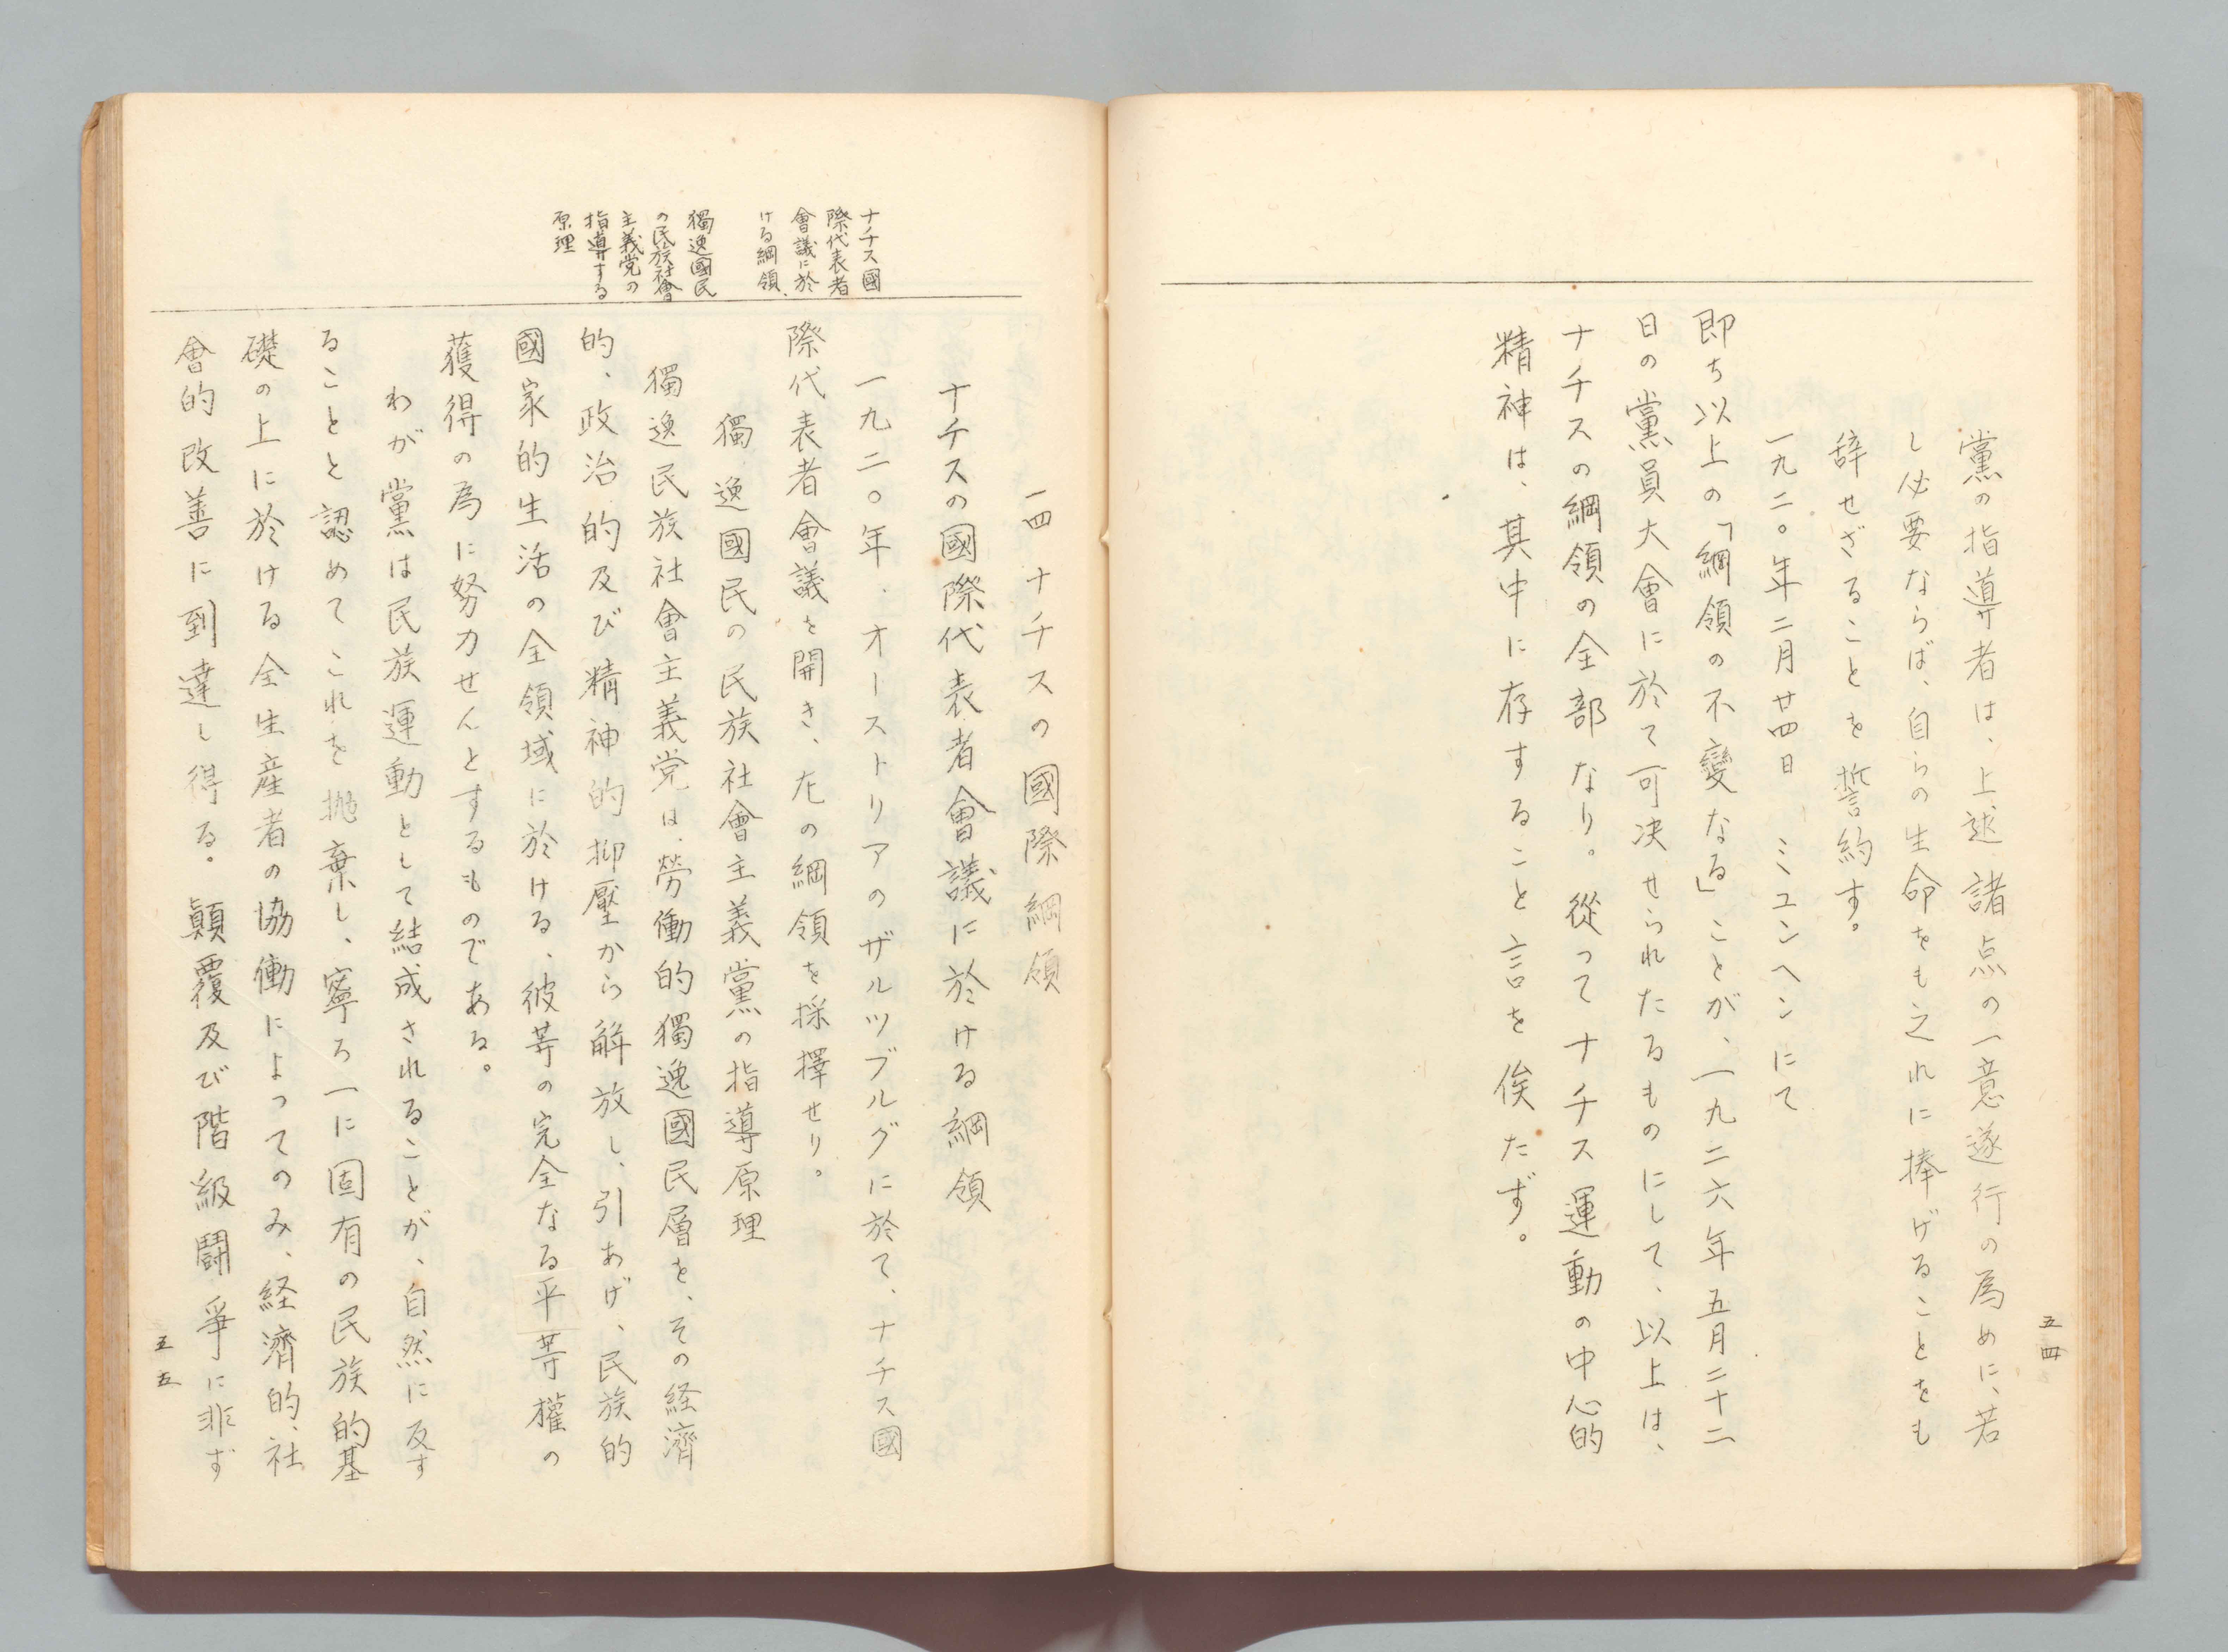 黨の指導者は、上述諸点の一意遂行の為めに、若
し必要ならば、自らの生命をも之れに捧げることをも
辞せざることを誓約す。
一九二〇年二月廿四日　ミユンヘンにて
即ち以上の「綱領の不變なる」ことが、一九二六年五月二十二
日の黨員大會に於て可决せられたるものにして、以上は、
ナチスの綱領の全部なり。從つてナチス運動の中心的
精神は、其中に存すること言を俟たず。
五四
ナチス國
際代表者
會議に於
ける綱領
獨逸國民
の民族社會
主義党の
指導する
原理
一四　ナチスの國際綱領
ナチスの國際代表者會議に於ける綱領
一九二〇年、オーストリアのザルツブルグに於て、ナチス國
際代表者會議を開き、左の綱領を採擇せり。
獨逸國民の民族社會主義黨の指導原理
獨逸民族社會主義党は、勞働的獨逸國民層を、その経濟
的、政治的及び精神的抑壓から解放し、引あげ、民族的
國家的生活の全領域に於ける、彼等の完全なる平等權の
獲得の為に努力せんとするものである。
わが黨は民族運動として結成されることが、自然に反す
ることと認めてこれを抛棄し、寧ろ一に固有の民族的基
礎の上に於ける全生産者の協働によつてのみ、経濟的、社
會的改善に到達し得る。顛覆及び階級鬪爭に非ず
五五